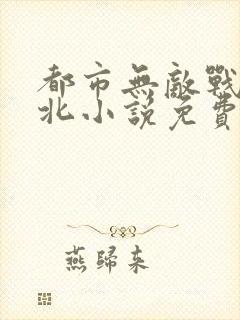 都市無敵戰
北小說免費
燕歸來